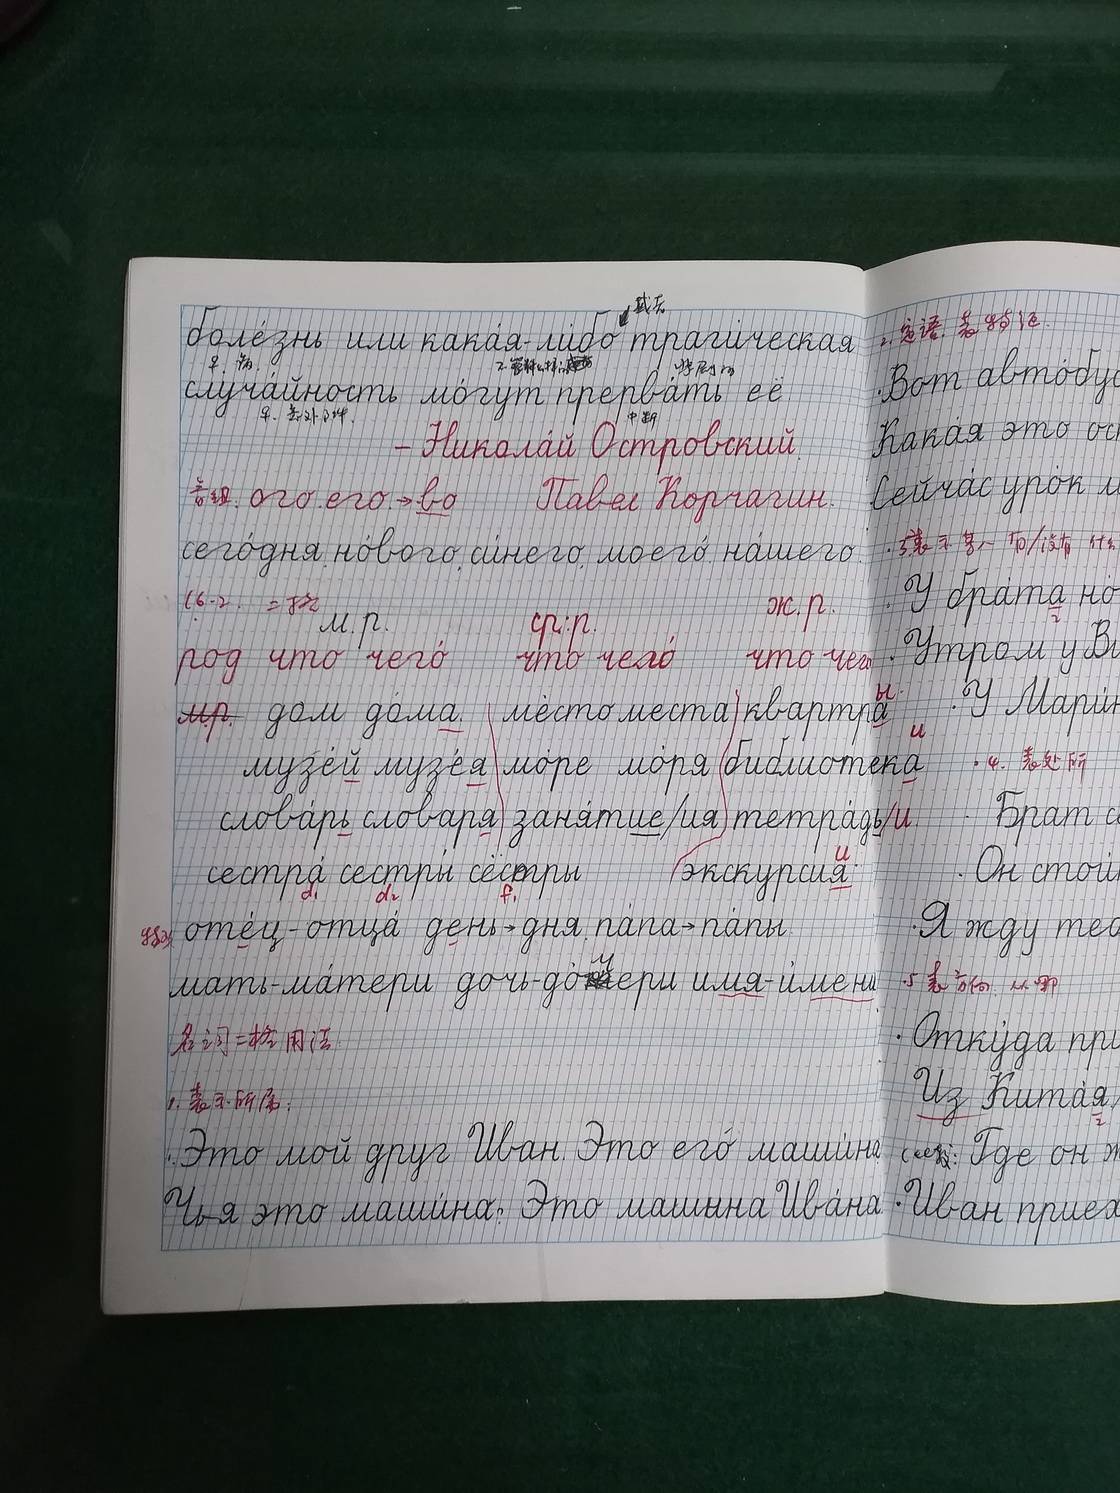 或者
боле́знь или кака́я-ли́бо траги́ческая
случа́йность мо́гут прерва́ть её.
中断
– Никола́й Островский.
音组. ого. его. → во Павел Корчагин.
сего́дня, но́вого, си́него, моего́, на́шего.
м.р. ср.р. ж.р.
род что чего́ что чего́ что чего
м.р. дом до́ма. ме́сто места квартира ы.
музе́й музе́я мо́ре мо́ря библиотека и
слова́рь словаря́ заня́тие/ия тетра́дь/и.
сестра́ сестры́ сёстры экскурсия и
оте́ц - отца́ де́нь → дня, па́па → па́пы
мать - ма́тери дочь - до́чери и́мя - и́мени
名词二格用法
1. 表示所属:
· Это мой друг Иван. Это его́ маши́на.
Чья это маши́на? Это машина Ива́на.
2. 定语. 表特征.
· Вот авто́бус
Кака́я это ос
Сейча́с уро́к
У бра́та но
· Утром у Ви
· У Мари́н
· 4. 表处所
· Брат
· Он стои́
· Я жду
· 5 表方向. 从哪
· Отку́да при
Из Кита́я
Где он ж
· Иван приех